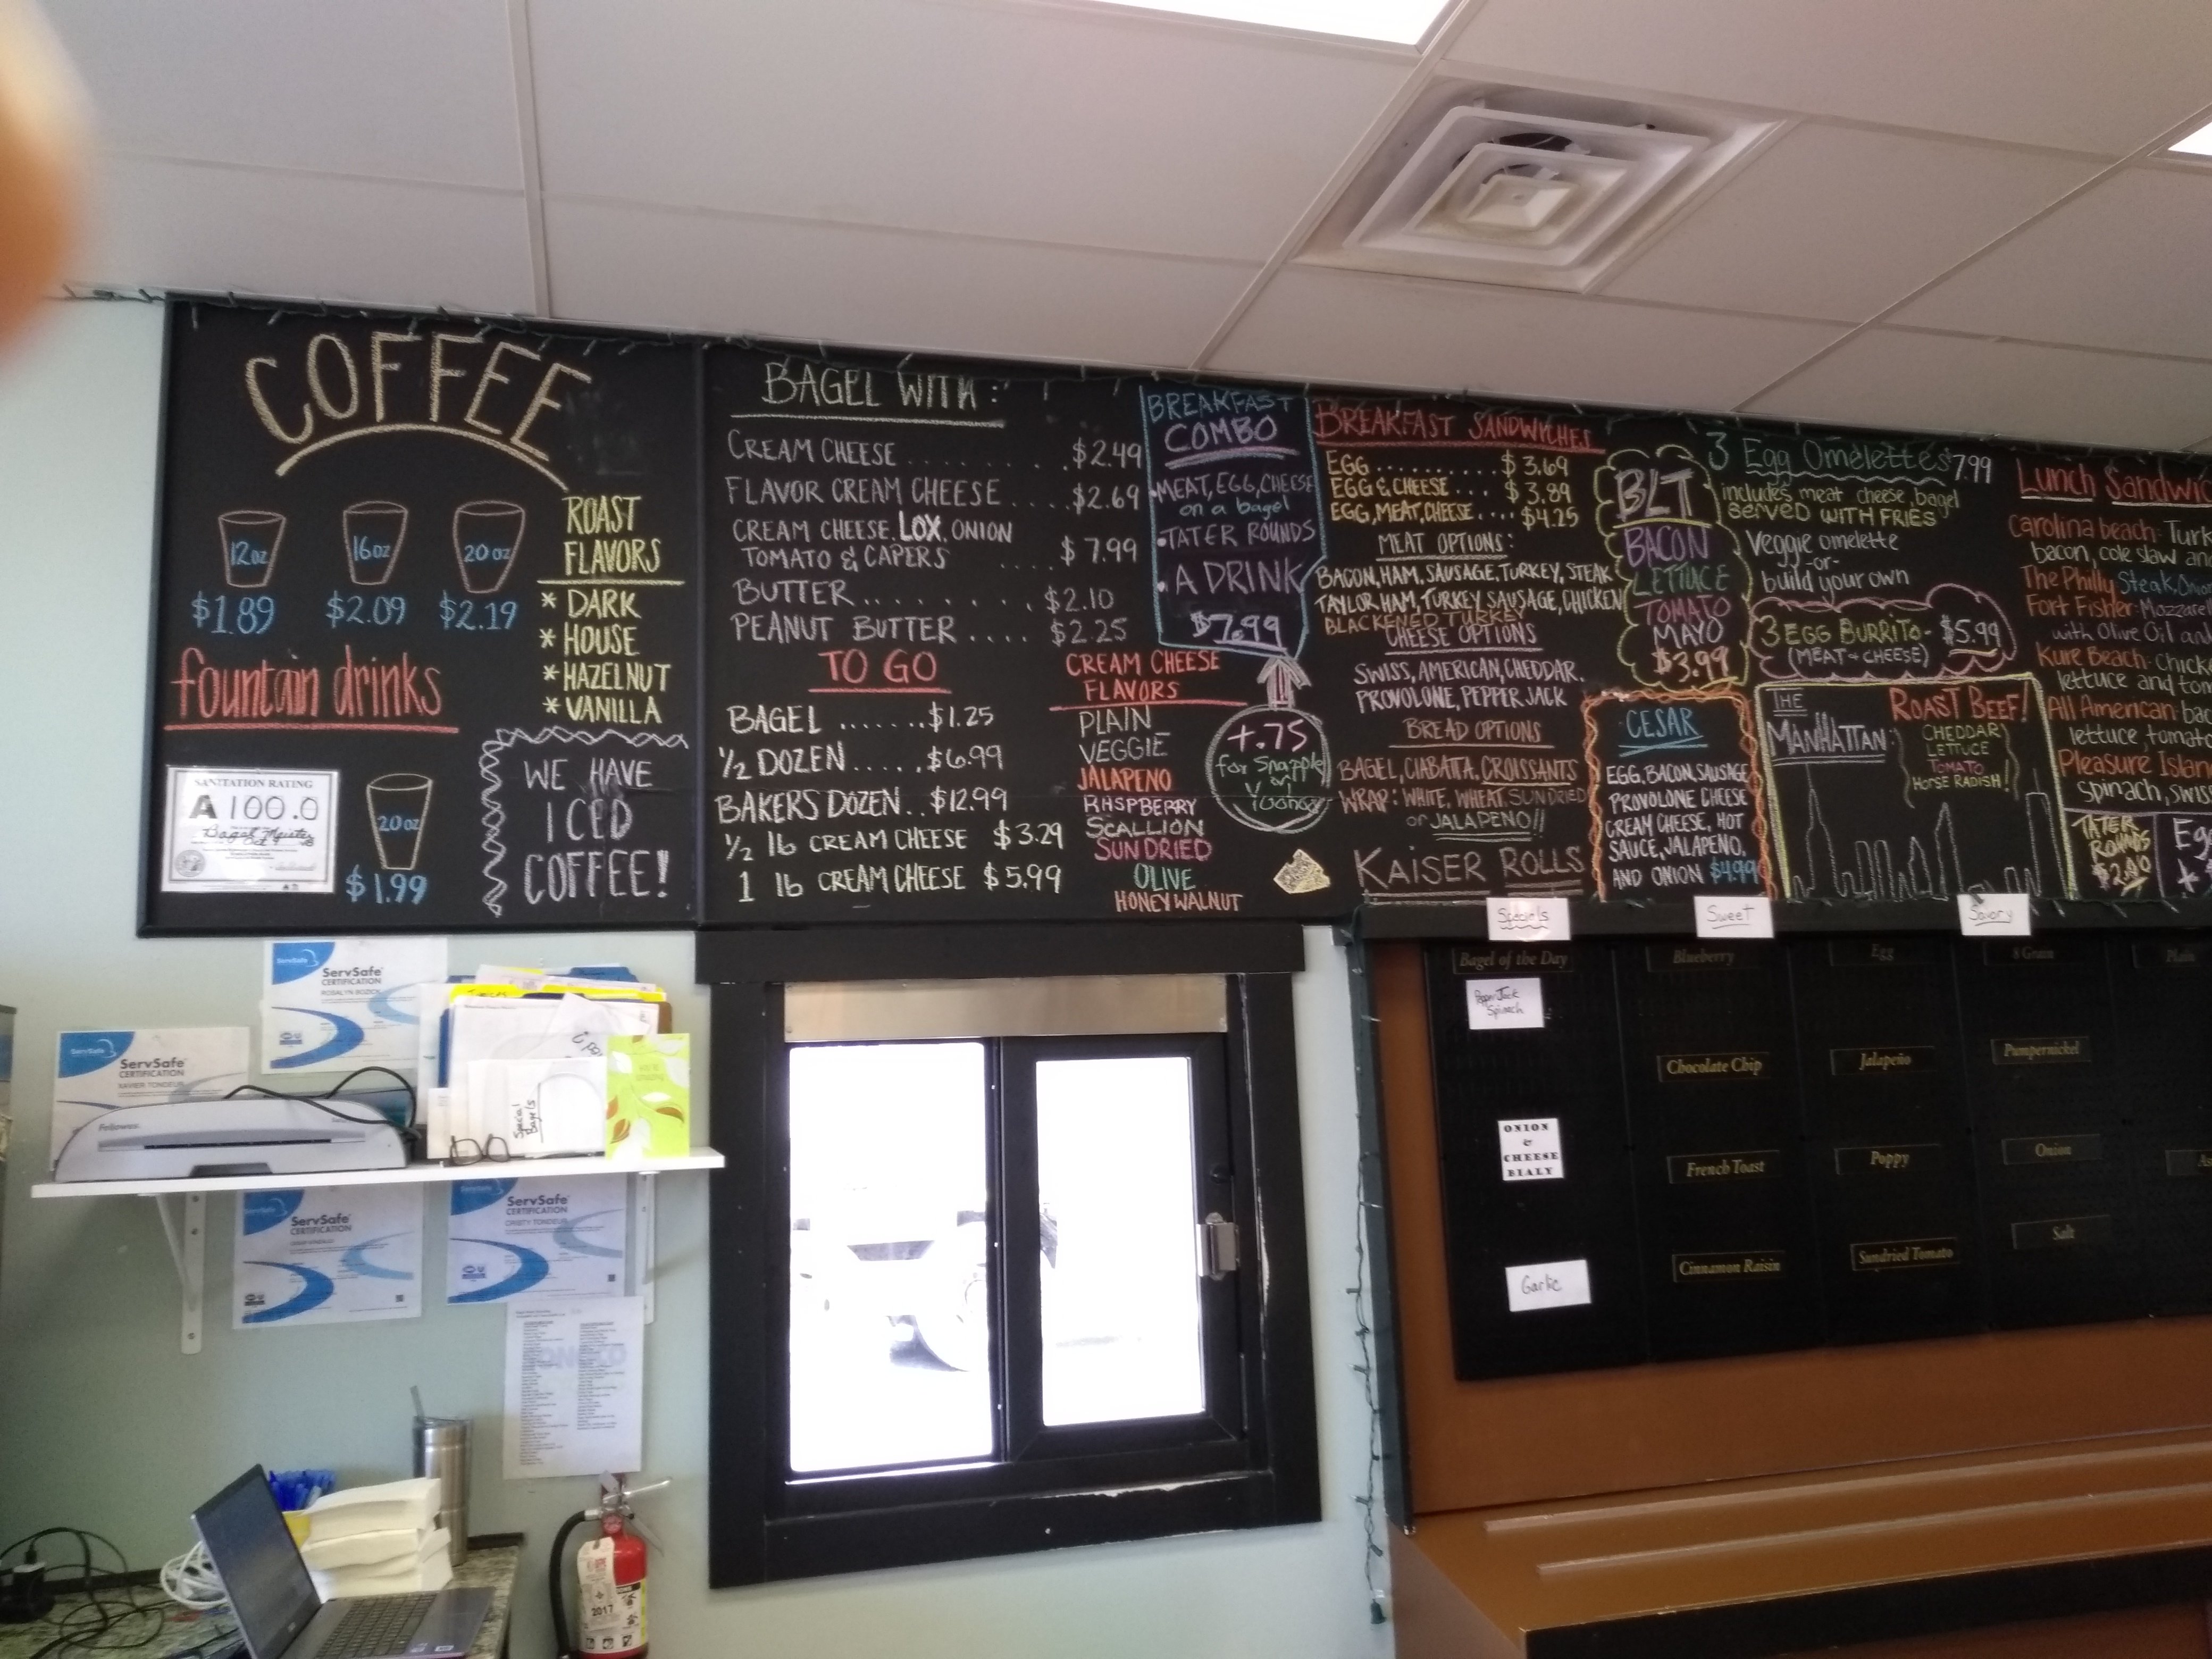 COFFEE
12oz
16oz
20oz
$1.89
$2.09
$2.19
ROAST
FLAVORS
* DARK
* HOUSE
* HAZELNUT
* VANILLA
fountain drinks
SANITATION RATING
A 100.0
Bagel Meister
20oz
$1.99
WE HAVE
ICED
COFFEE!
BAGEL WITH:
CREAM CHEESE ........ $2.49
FLAVOR CREAM CHEESE .... $2.69
CREAM CHEESE, LOX, ONION
TOMATO & CAPERS .... $7.99
BUTTER ......... $2.10
PEANUT BUTTER .... $2.25
TO GO
BAGEL ....... $1.25
1/2 DOZEN ..... $6.99
BAKERS DOZEN .. $12.99
1/2 lb CREAM CHEESE $3.29
1 lb CREAM CHEESE $5.99
CREAM CHEESE
FLAVORS
PLAIN
VEGGIE
JALAPENO
RASPBERRY
SCALLION
SUNDRIED
OLIVE
HONEY WALNUT
BREAKFAST
COMBO
• MEAT, EGG, CHEESE
on a bagel
• TATER ROUNDS
• A DRINK
$7.99
+.75
for Snapple
or
Yoohoo
BREAKFAST SANDWICHES
EGG .......... $3.69
EGG & CHEESE ... $3.89
EGG, MEAT, CHEESE .... $4.25
MEAT OPTIONS:
BACON, HAM, SAUSAGE, TURKEY, STEAK
TAYLOR HAM, TURKEY SAUSAGE, CHICKEN
BLACKENED TURKEY
CHEESE OPTIONS
SWISS, AMERICAN, CHEDDAR,
PROVOLONE, PEPPER JACK
BREAD OPTIONS
BAGEL, CIABATTA, CROISSANTS
WRAP: WHITE, WHEAT, SUNDRIED
or JALAPENO!!
KAISER ROLLS
BLT
BACON
LETTUCE
TOMATO
MAYO
$3.99
CESAR
EGG, BACON, SAUSAGE
PROVOLONE CHEESE
CREAM CHEESE, HOT
SAUCE, JALAPENO,
AND ONION $4.99
3 Egg Omelettes 7.99
includes meat, cheese, bagel
SERVED WITH FRIES
Veggie omelette
-or-
build your own
3 EGG BURRITO- $5.99
(MEAT & CHEESE)
THE
MANHATTAN:
ROAST BEEF!
CHEDDAR
LETTUCE
TOMATO
HORSE RADISH!
Lunch Sandwic
Carolina beach: Turk
bacon, cole slaw and
The Philly Steak, Onio
Fort Fisher: Mozzarel
with Olive Oil an
Kure Beach: Chick
lettuce and tom
All American: bac
lettuce, tomato
Pleasure Islan
spinach, swiss
TATER
ROUNDS
$2.00
Egg
Specials
Sweet
Savory
Bagel of the Day
Pepper Jack
Spinach
ONION
&
CHEESE
BIALY
Garlic
Blueberry
Chocolate Chip
French Toast
Cinnamon Raisin
Egg
Jalapeño
Poppy
Sundried Tomato
8 Grain
Pumpernickel
Onion
Salt
Plain
ServSafe
ServSafe
CERTIFICATION
ROSALYN BOZICK
ServSafe
ServSafe
CERTIFICATION
XAVIER TONDEUR
Fellowes
Special
Bagels
ServSafe
CERTIFICATION
ServSafe
CERTIFICATION
CHRISTY TONDEUR
2017